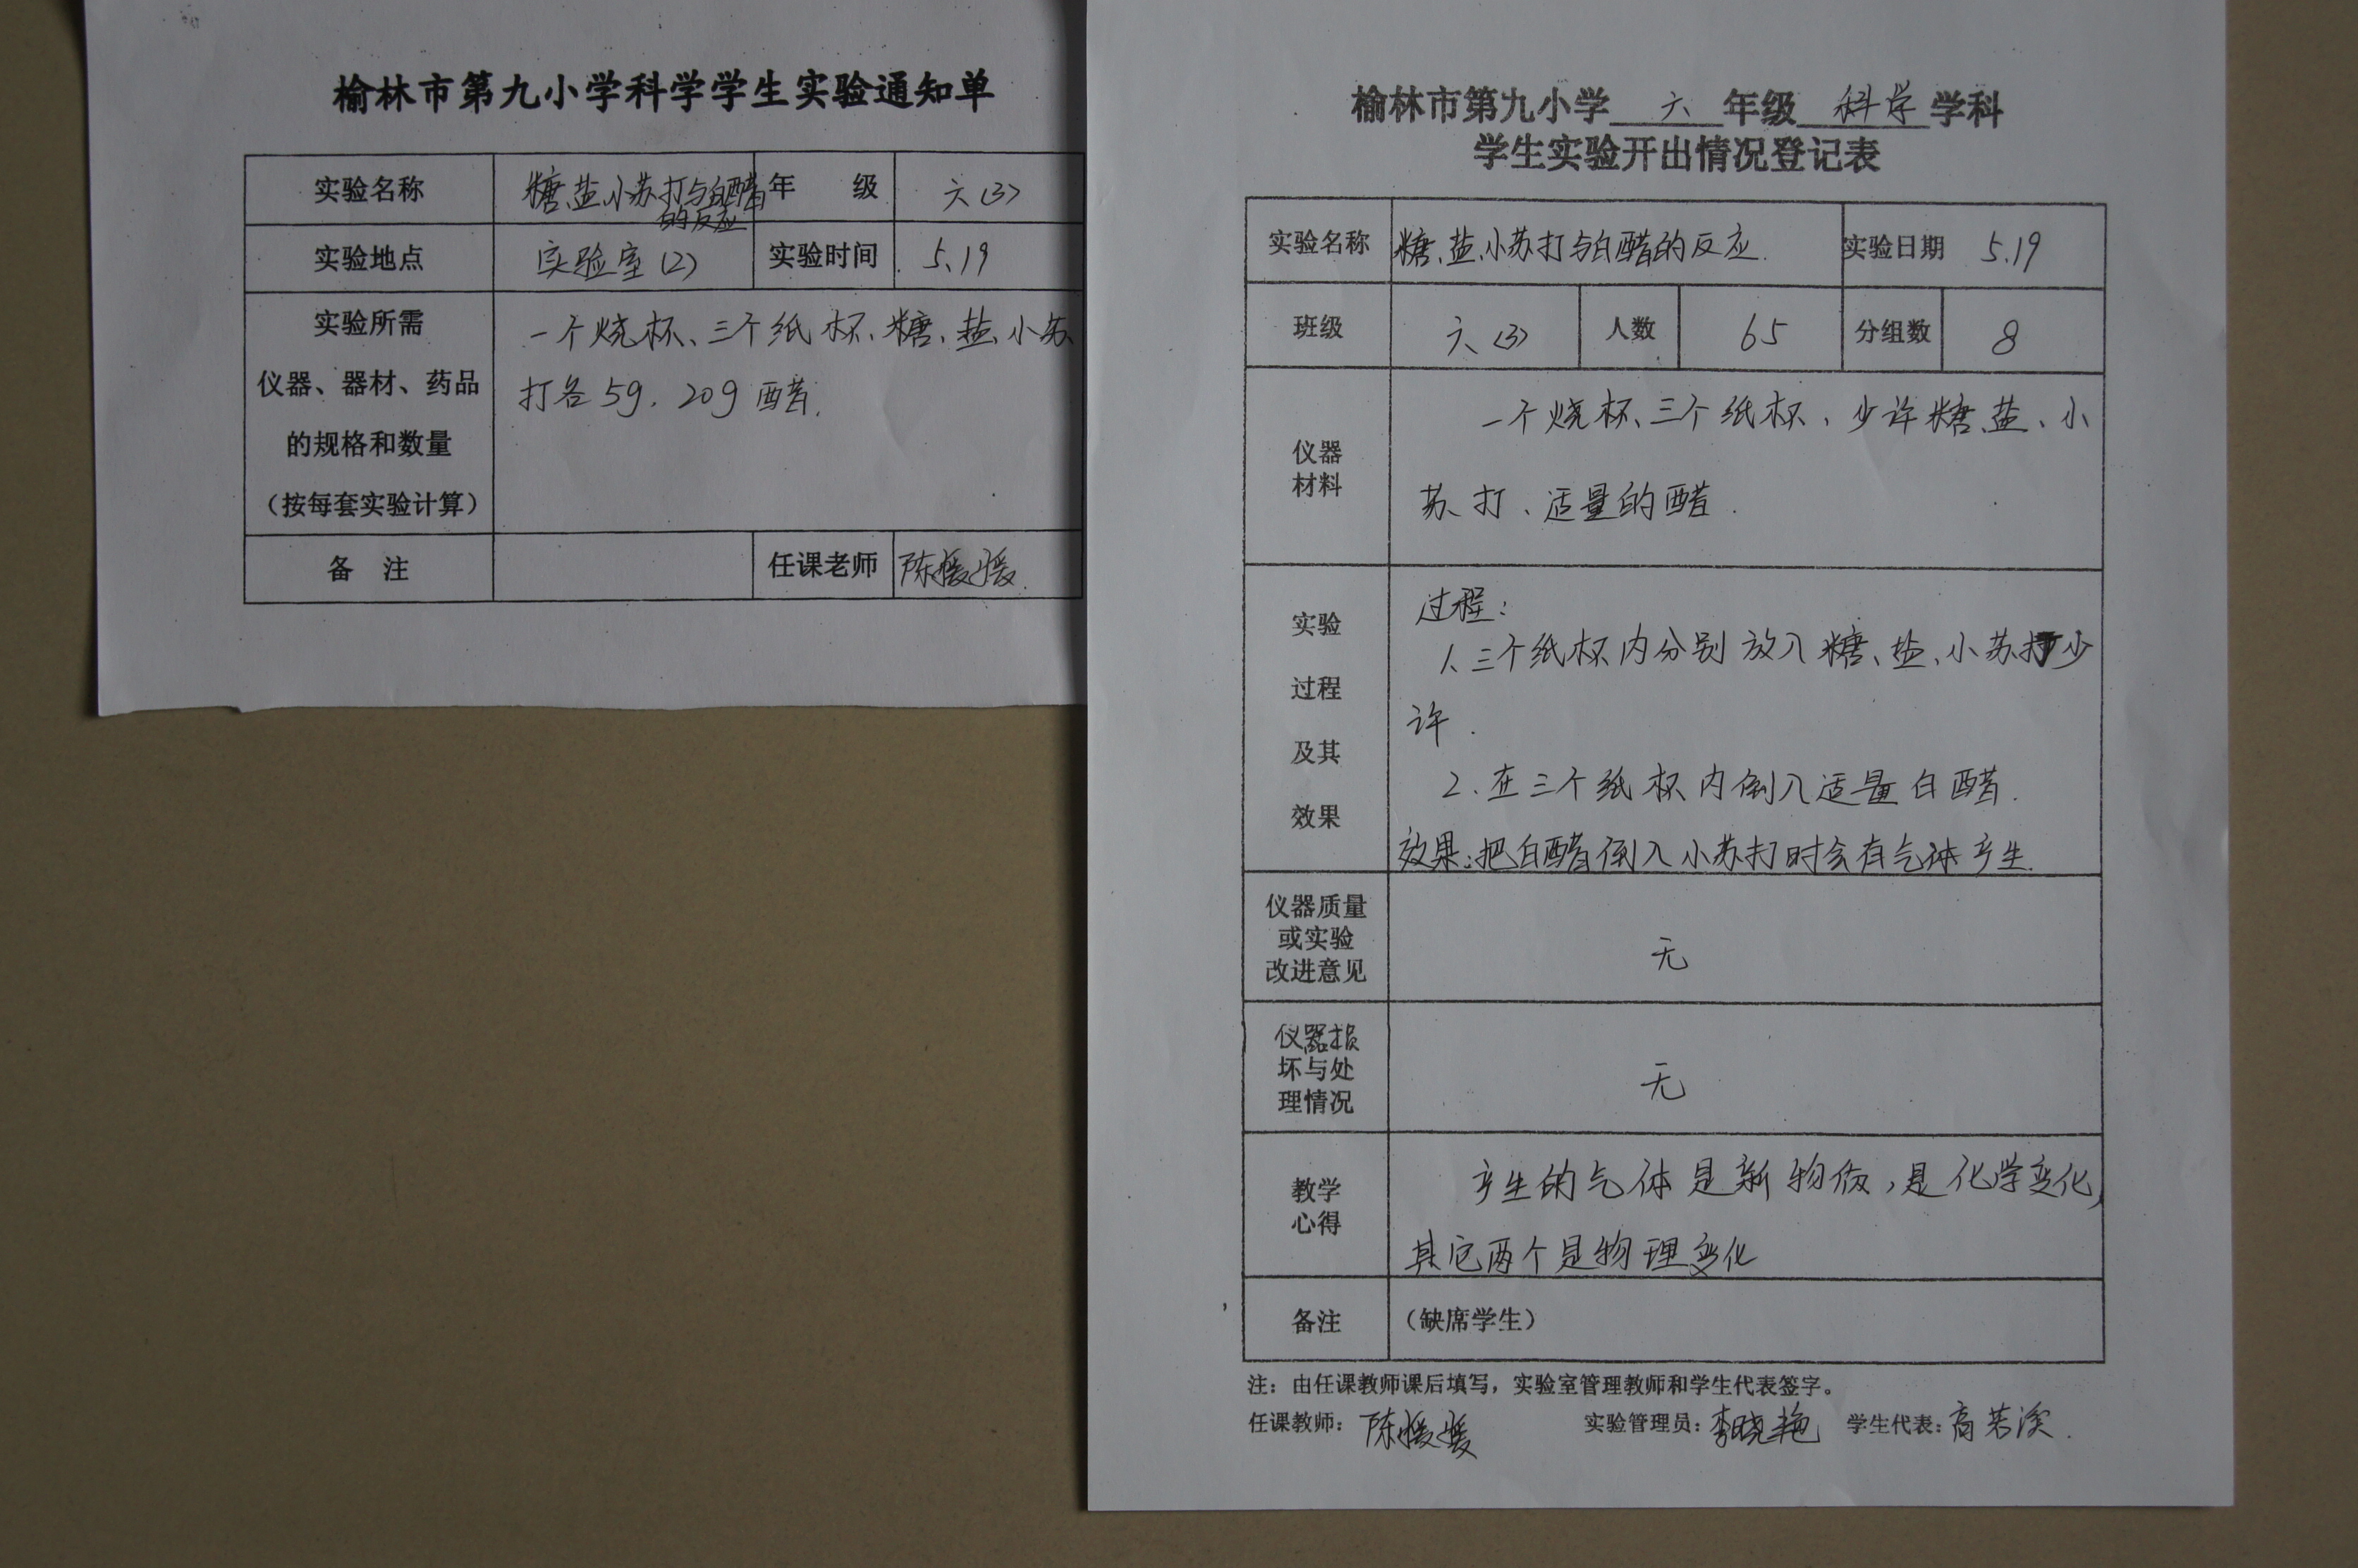 榆林市第九小学科学学生实验通知单
实验名称 糖、盐、小苏打与白醋的反应 年 级 六(3)
实验地点 实验室(2) 实验时间 5.19
实验所需
仪器、器材、药品
的规格和数量
(按每套实验计算)
一个烧杯、三个纸杯、糖、盐、小苏
打各5g、20g醋.
备 注 任课老师 陈媛媛
榆林市第九小学 六 年级 科学 学科
学生实验开出情况登记表
实验名称 糖、盐、小苏打与白醋的反应. 实验日期 5.19
班级 六(3) 人数 65 分组数 8
仪器
材料
一个烧杯、三个纸杯、少许糖、盐、小
苏打、适量的醋.
实验
过程
及其
效果
过程:
1、三个纸杯内分别放入糖、盐、小苏打少
许.
2.在三个纸杯内倒入适量白醋.
效果:把白醋倒入小苏打时会有气体产生.
仪器质量
或实验
改进意见
无
仪器损
坏与处
理情况
无
教学
心得
产生的气体是新物质,是化学变化,
其它两个是物理变化
备注 (缺席学生)
注:由任课教师课后填写,实验室管理教师和学生代表签字。
任课教师: 陈媛媛 实验管理员: 李晓艳 学生代表: 高若溪.